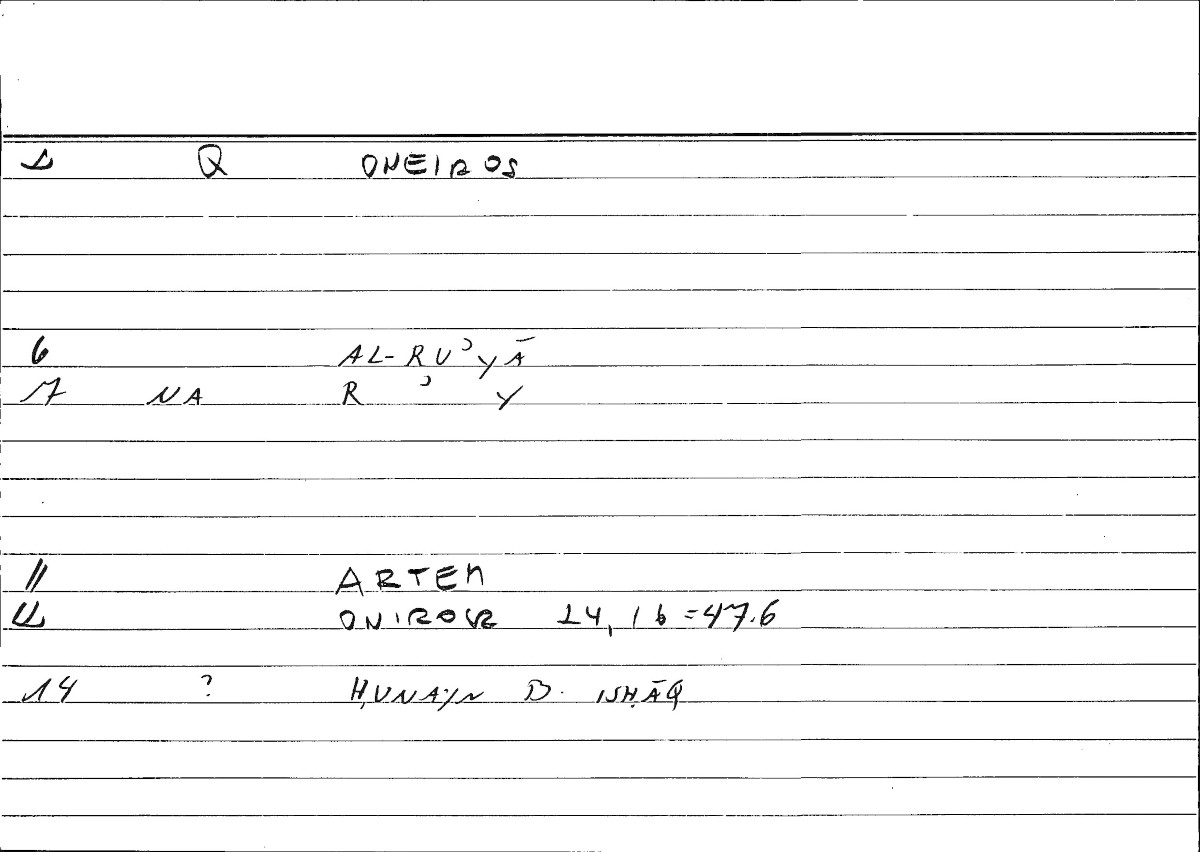 1 Q ONEIROS
6 AL-RUʾYĀ
17 NA R ʾ Y
11 ARTEM
12 ONIROCR 14, 16=47.6
14 ? ḤUNAYN B. ISḤĀQ